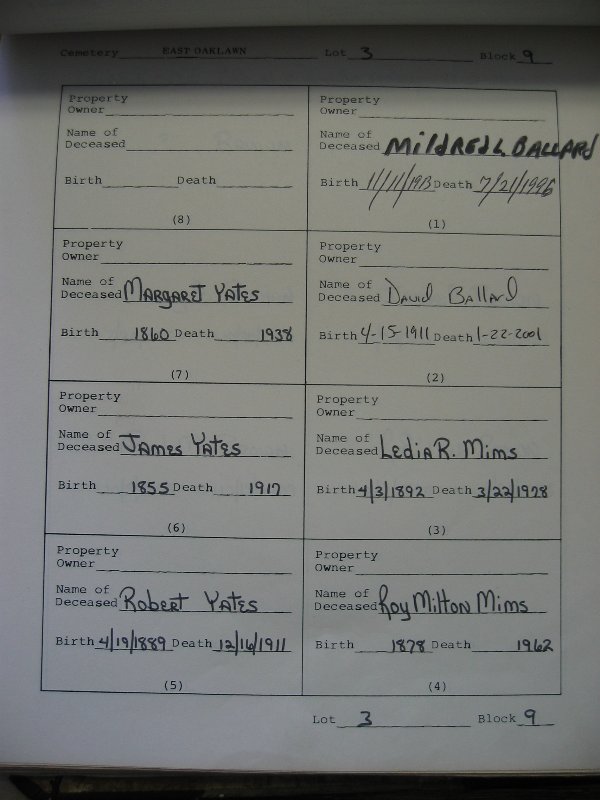 Cemetery EAST OAKLAWN Lot 3 Block 9
Property
Owner
Name of
Deceased
Birth Death
(8)
Property
Owner
Name of
Deceased Mildred L. Ballard
Birth 11/11/1913 Death 7/21/1996
(1)
Property
Owner
Name of
Deceased Margaret Yates
Birth 1860 Death 1938
(7)
Property
Owner
Name of
Deceased David Ballard
Birth 4-15-1911 Death 1-22-2001
(2)
Property
Owner
Name of
Deceased James Yates
Birth 1855 Death 1917
(6)
Property
Owner
Name of
Deceased Ledia R. Mims
Birth 4/3/1892 Death 3/22/1978
(3)
Property
Owner
Name of
Deceased Robert Yates
Birth 4/19/1889 Death 12/16/1911
(5)
Property
Owner
Name of
Deceased Roy Milton Mims
Birth 1878 Death 1962
(4)
Lot 3 Block 9